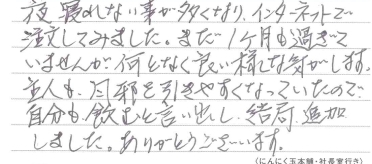 夜、寝れない事が多くなり、インターネットで
注文してみました。まだ1ヶ月も過ぎて
いませんが、何となく良い様な気がします。
主人も、風邪を引きやすくなっていたので
自分も飲むと言い出し、結局、追加
しました。ありがとうございます。
(にんにく玉本舗・社長宛行き)